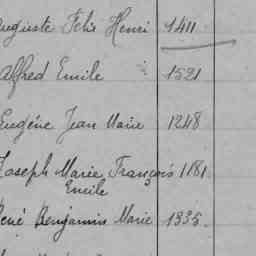 Auguste Felix Henri 1411
Alfred Emile 1521
Eugène Jean Marie 1248
Joseph Marie François 1181
Emile
René Benjamin Marie 1335